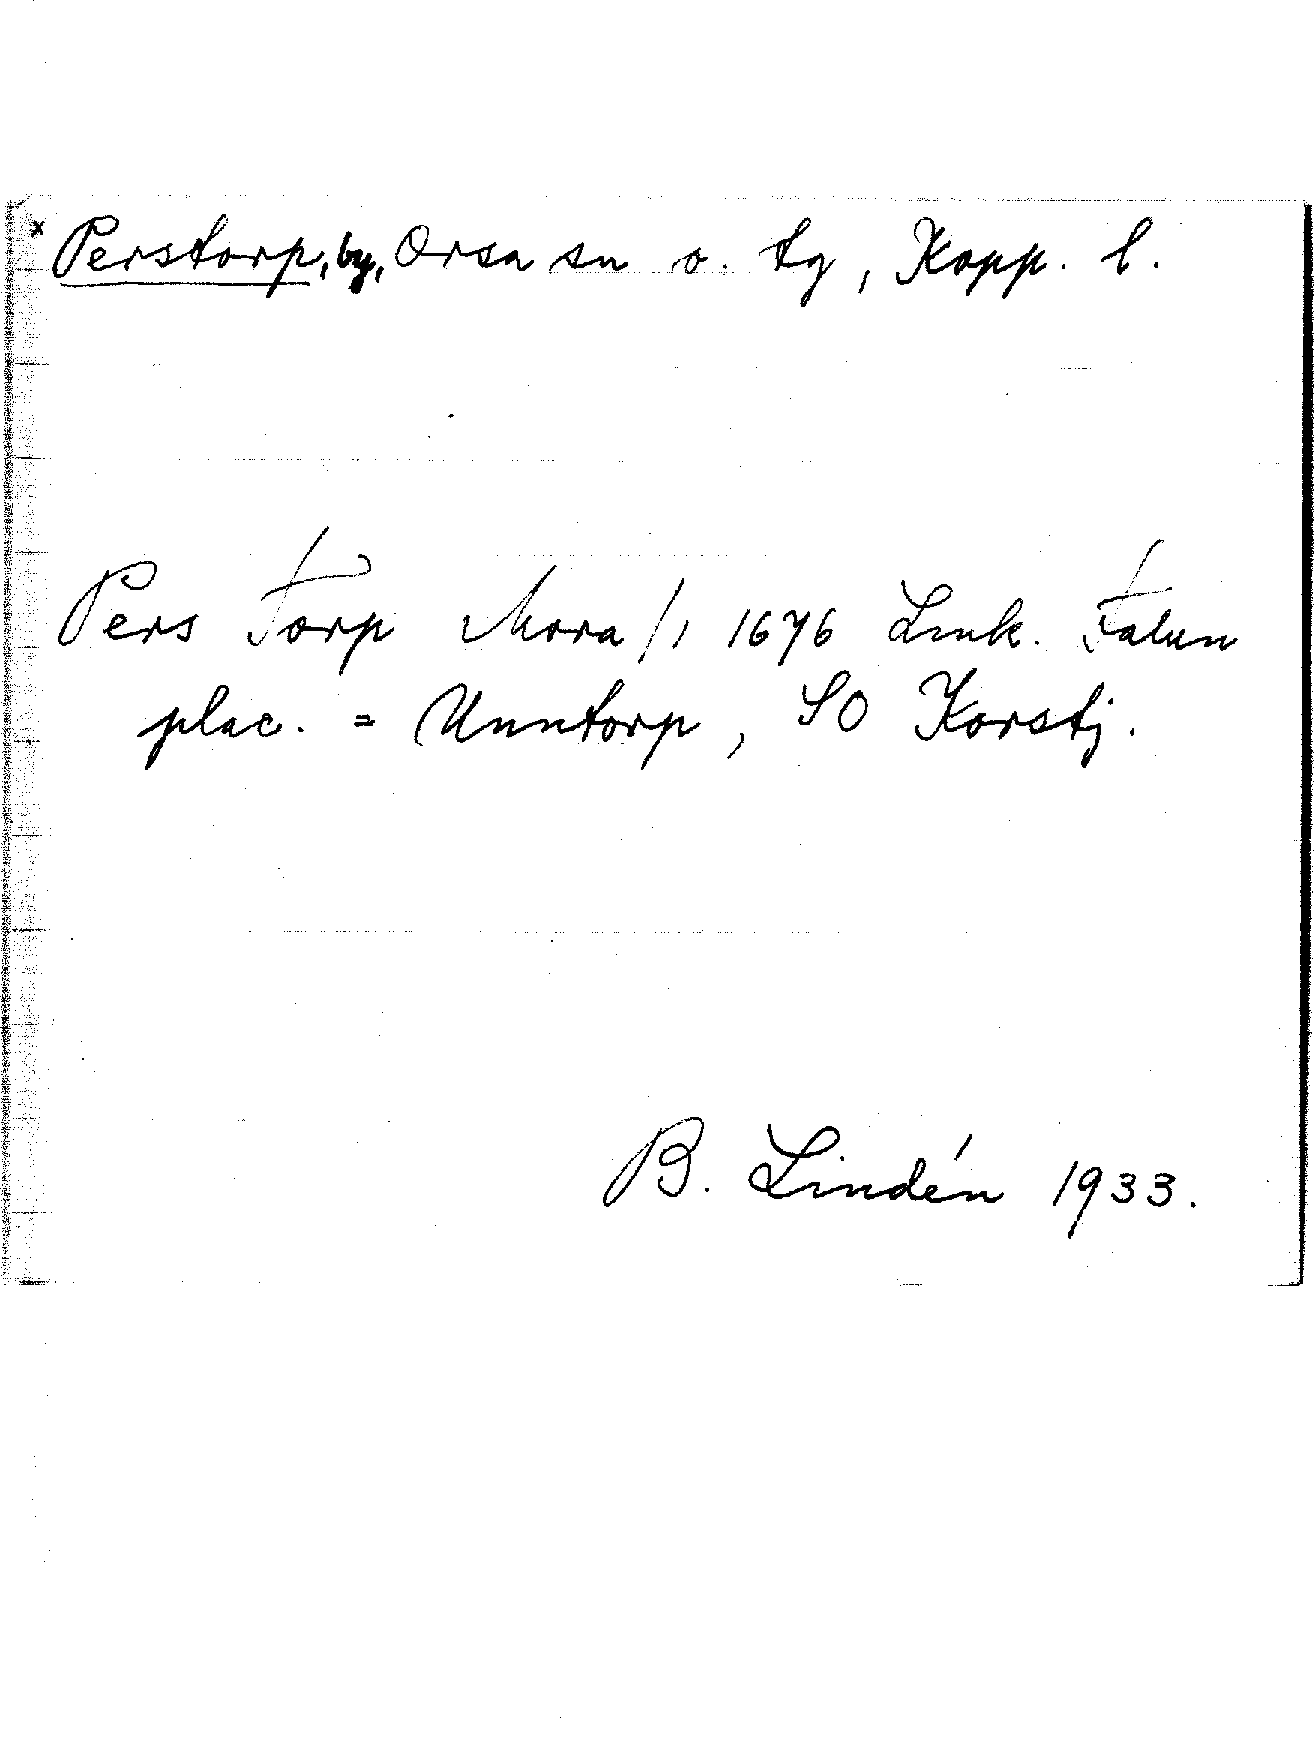 x Perstorp, by, Orsa sn o. tg, Kopp. l.
Pers Torp Mora /1 1676 Link. Falun
plac. = Unntorp, SO Korstj.
B. Lindén 1933.